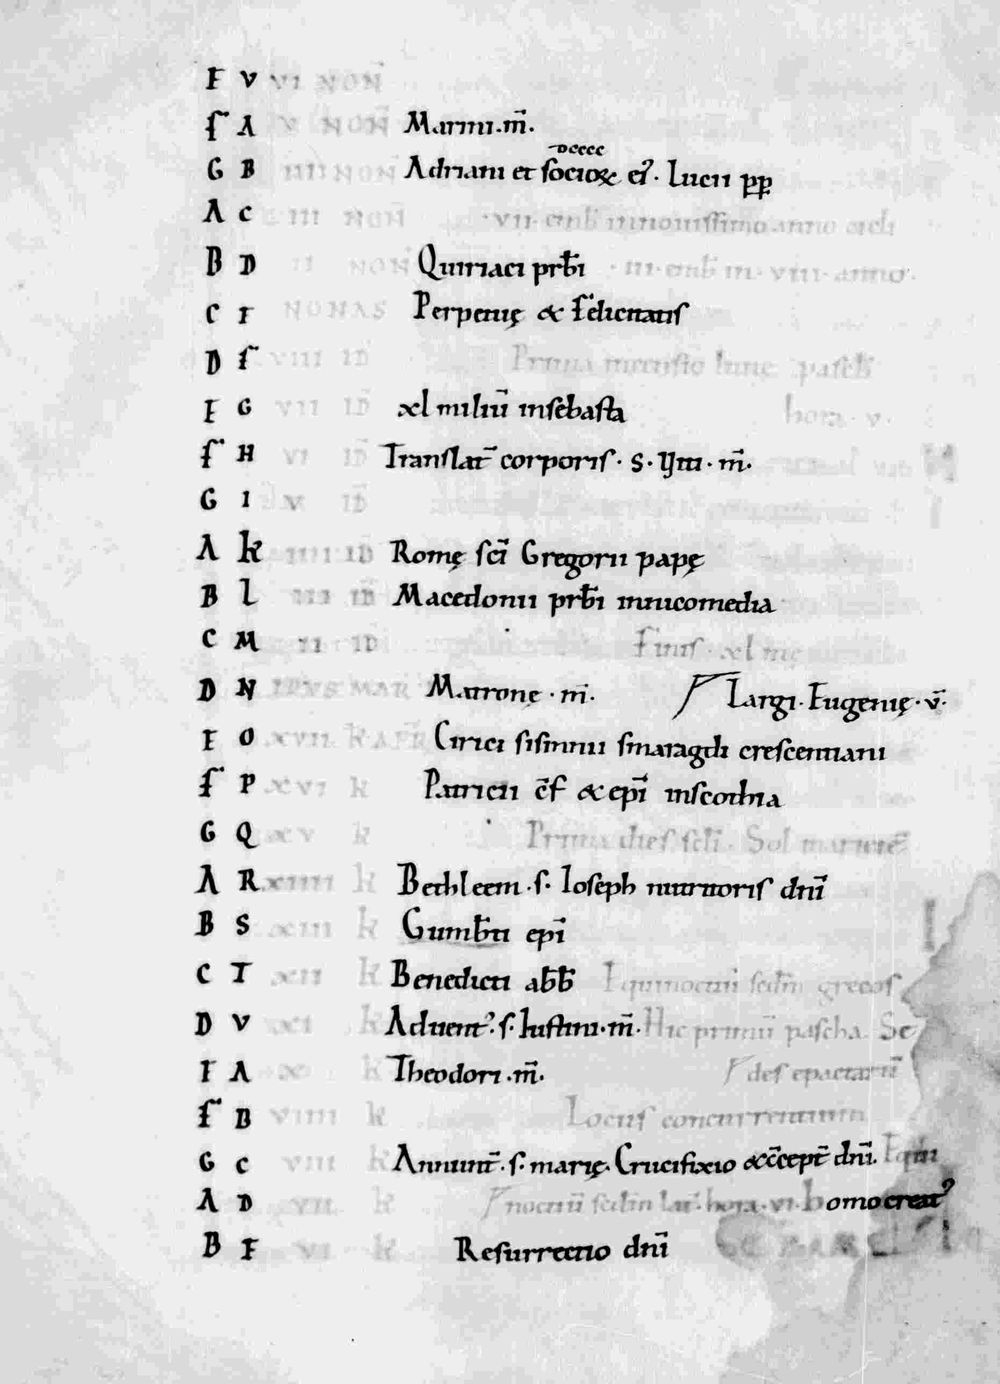 F V VI NON̄
ſ A V NON̄ Marini .m̄.
dcccc
G B IIII NON̄ Adriani et socioꝝ ei᾽. Lucii pp
A C III NON̄ .VII. embł in nouissimo anno cicli
B D II NON̄ Quiriaci prb̄i . III. emb̄ in . VIII. anno.
C E NONAS Perpetuę & felicitatis
D ſ VIII ID Prima incensio lune pasch̄
E G VII ID xl militū insebasta hora . v.
ſ H VI ID̄ Translat̄ corporis . s. ẏm̄ . m̄.
G I V ID
A K IIII ID Romę sc̄i Gregorii papę
B L III ID̄ Macedonii prb̄i innicomedia
C M II ID Finis . xl
D N IDVS MAR Matronę . m̄. Largi. Eugenię . v̄.
E O XVII K APR̄ Cirici sisinnii smaragdi crescentiani
ſ P XVI k Patricii c̄f & ep̄i inscothia
G Q XV k Prima dies scłi. Sol in ariete
A R XIIII k Bethleem .s. Ioseph nutritoris dn̄i
B S XIII k Gumb̄ti ep̄i
C T XII k Benedicti ab̄b̄ Equinoctiū sedm̄ grecos
D V XI k Aduent᾽. s. Iustini. m̄. Hic primū pascha. Se
E A X k Theodori .m̄. des epactarū
ſ B VIIII k Locus concurrentium
G C VIII k Annunt̄ . s. marię. Crucifixio & c̄cept̄ dn̄i. Equi
A D VII k noctiū sedm̄ lat̄. hora . vi. homo creat᾽
B E VI k Resurrectio dn̄i